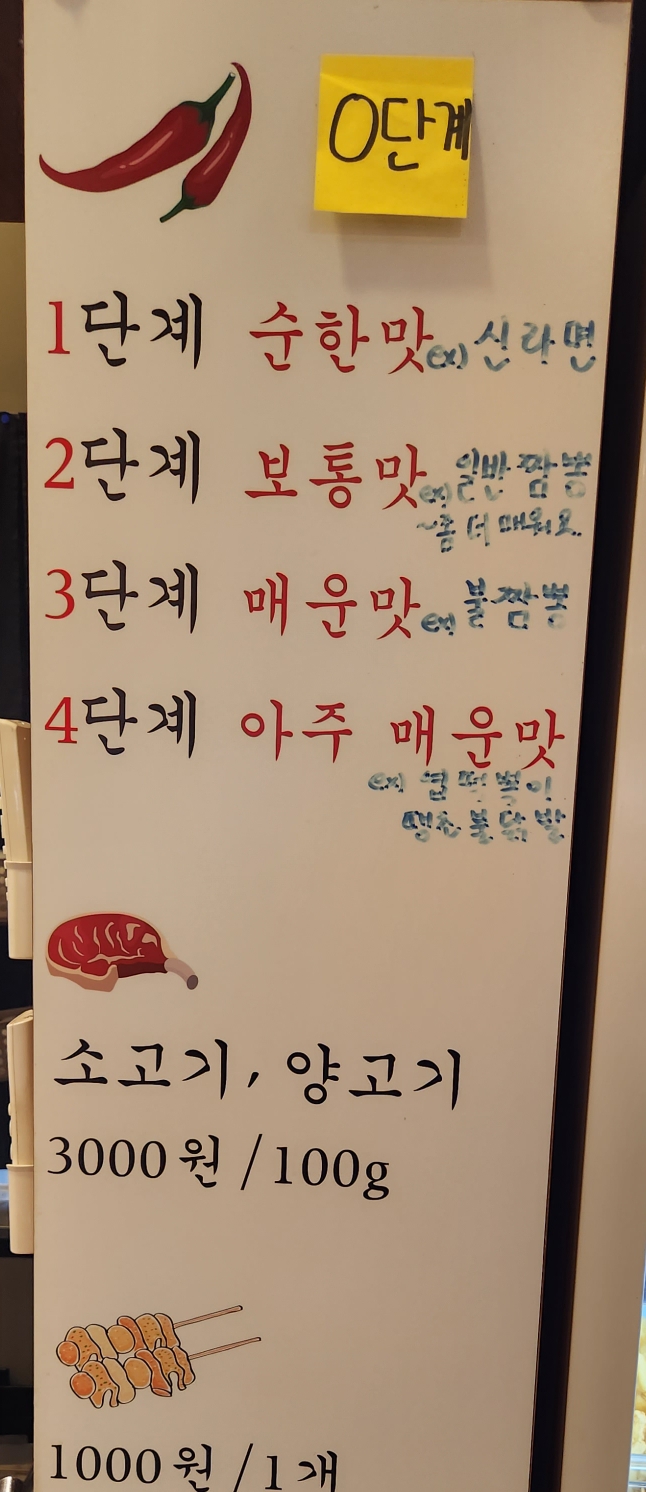 0단계
1단계 순한맛 ex) 신라면
2단계 보통맛 ex) 일반짬뽕
~좀 더 매워요.
3단계 매운맛 ex) 불짬뽕
4단계 아주 매운맛
ex) 엽떡볶이
땡초불닭발
소고기, 양고기
3000원 / 100g
1000원 / 1개